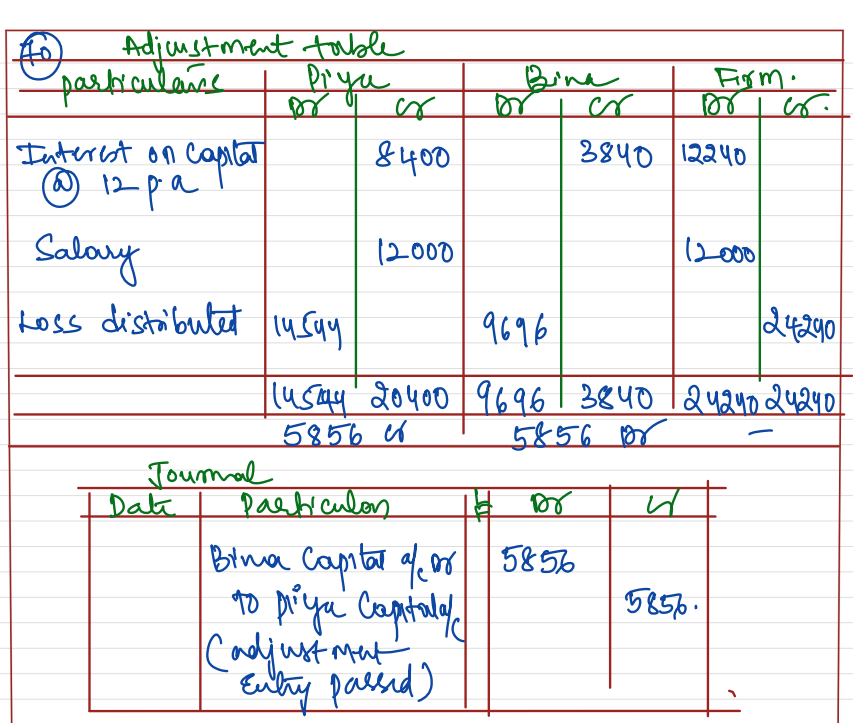 40 Adjustment table
particulars Priya Bina Firm.
Dr Cr Dr Cr Dr Cr.
Interest on Capital 8400 3840 12240
@ 12 p.a
Salary 12000 12000
Loss distributed 14544 9696 24240
14544 20400 9696 3840 24240 24240
5856 Cr 5856 Dr —
Journal
Date Particulars LF Dr Cr
Bina Capital a/c Dr 5856
To Priya Capital a/c 5856.
(adjustment
Entry passed)